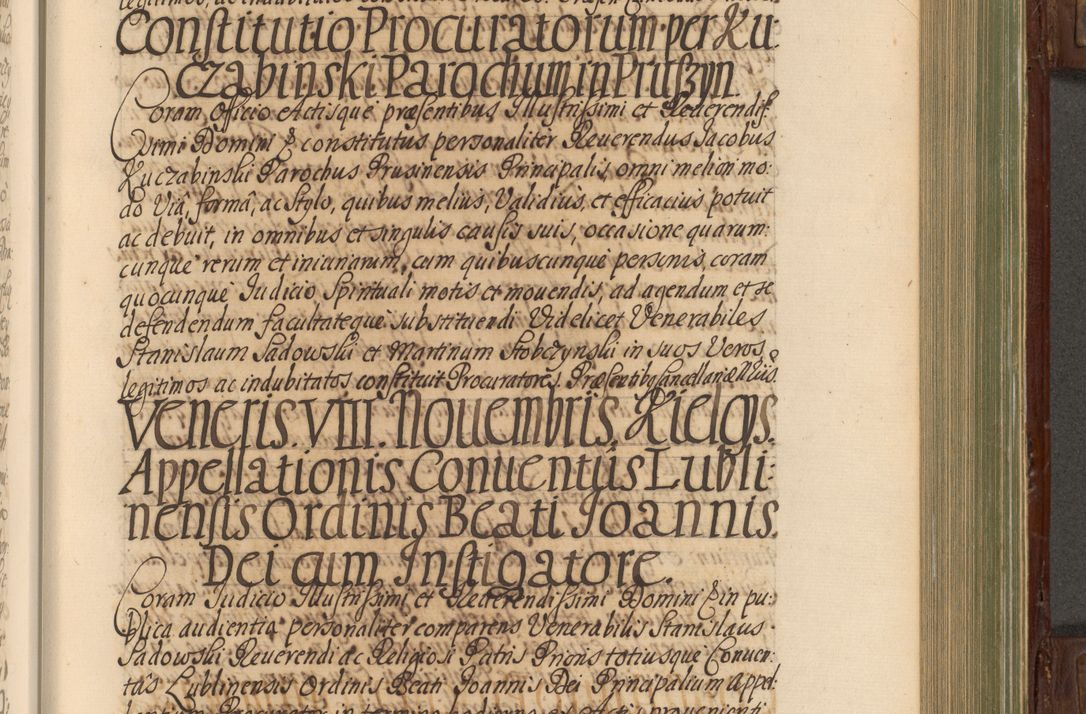 legitimos, ac indubitatos
Constitutio Procuratorum per Ku:
czabinski Parochum in Pruszyn
Coram Officio Actisque præsentibus Illustrissimi et Reuerendiss:
imi Domini & constitutus personaliter Reuerendus Jacobus
Kuczabinski Parochus Prusinensis Principalis, omni meliori mo:
do Viâ, formâ, ac stylo, quibus melius, Validius, et efficacius potuit
ac debuit, in omnibus et singulis causis suis, occasione quarum:
cunque rerum et iniuriarum, cum quibuscunque personis, coram
quocunque Iudicio Spirituali motis et mouendis, ad agendum et se
defendendum facultateque substituendi Videlicet Venerabiles
Stanislaum Sadowski et Martinum Stobczynski in suos Veros
legitimos ac indubitatos constituit Procuratores. Præsentibus Cancellariæ
Veneris. VIII. Nouembris. Kielcys.
Appellationis Conuentus Lubli:
nensis Ordinis Beati Joannis.
Dei cum Instigatore.
Coram Judicio Illustrissimi et Reuerendissimi Domini & in pu:
blica audientia personaliter comparens Venerabilis Stanislaus
Sadowski Reuerendi ac Religiosi Patris Prioris totiusque Conuen:
tûs Lublinensis Ordinis Beati Joannis Dei Principalium Appel:
lantium Procurator in termino hodierno ex Actis prouenienti